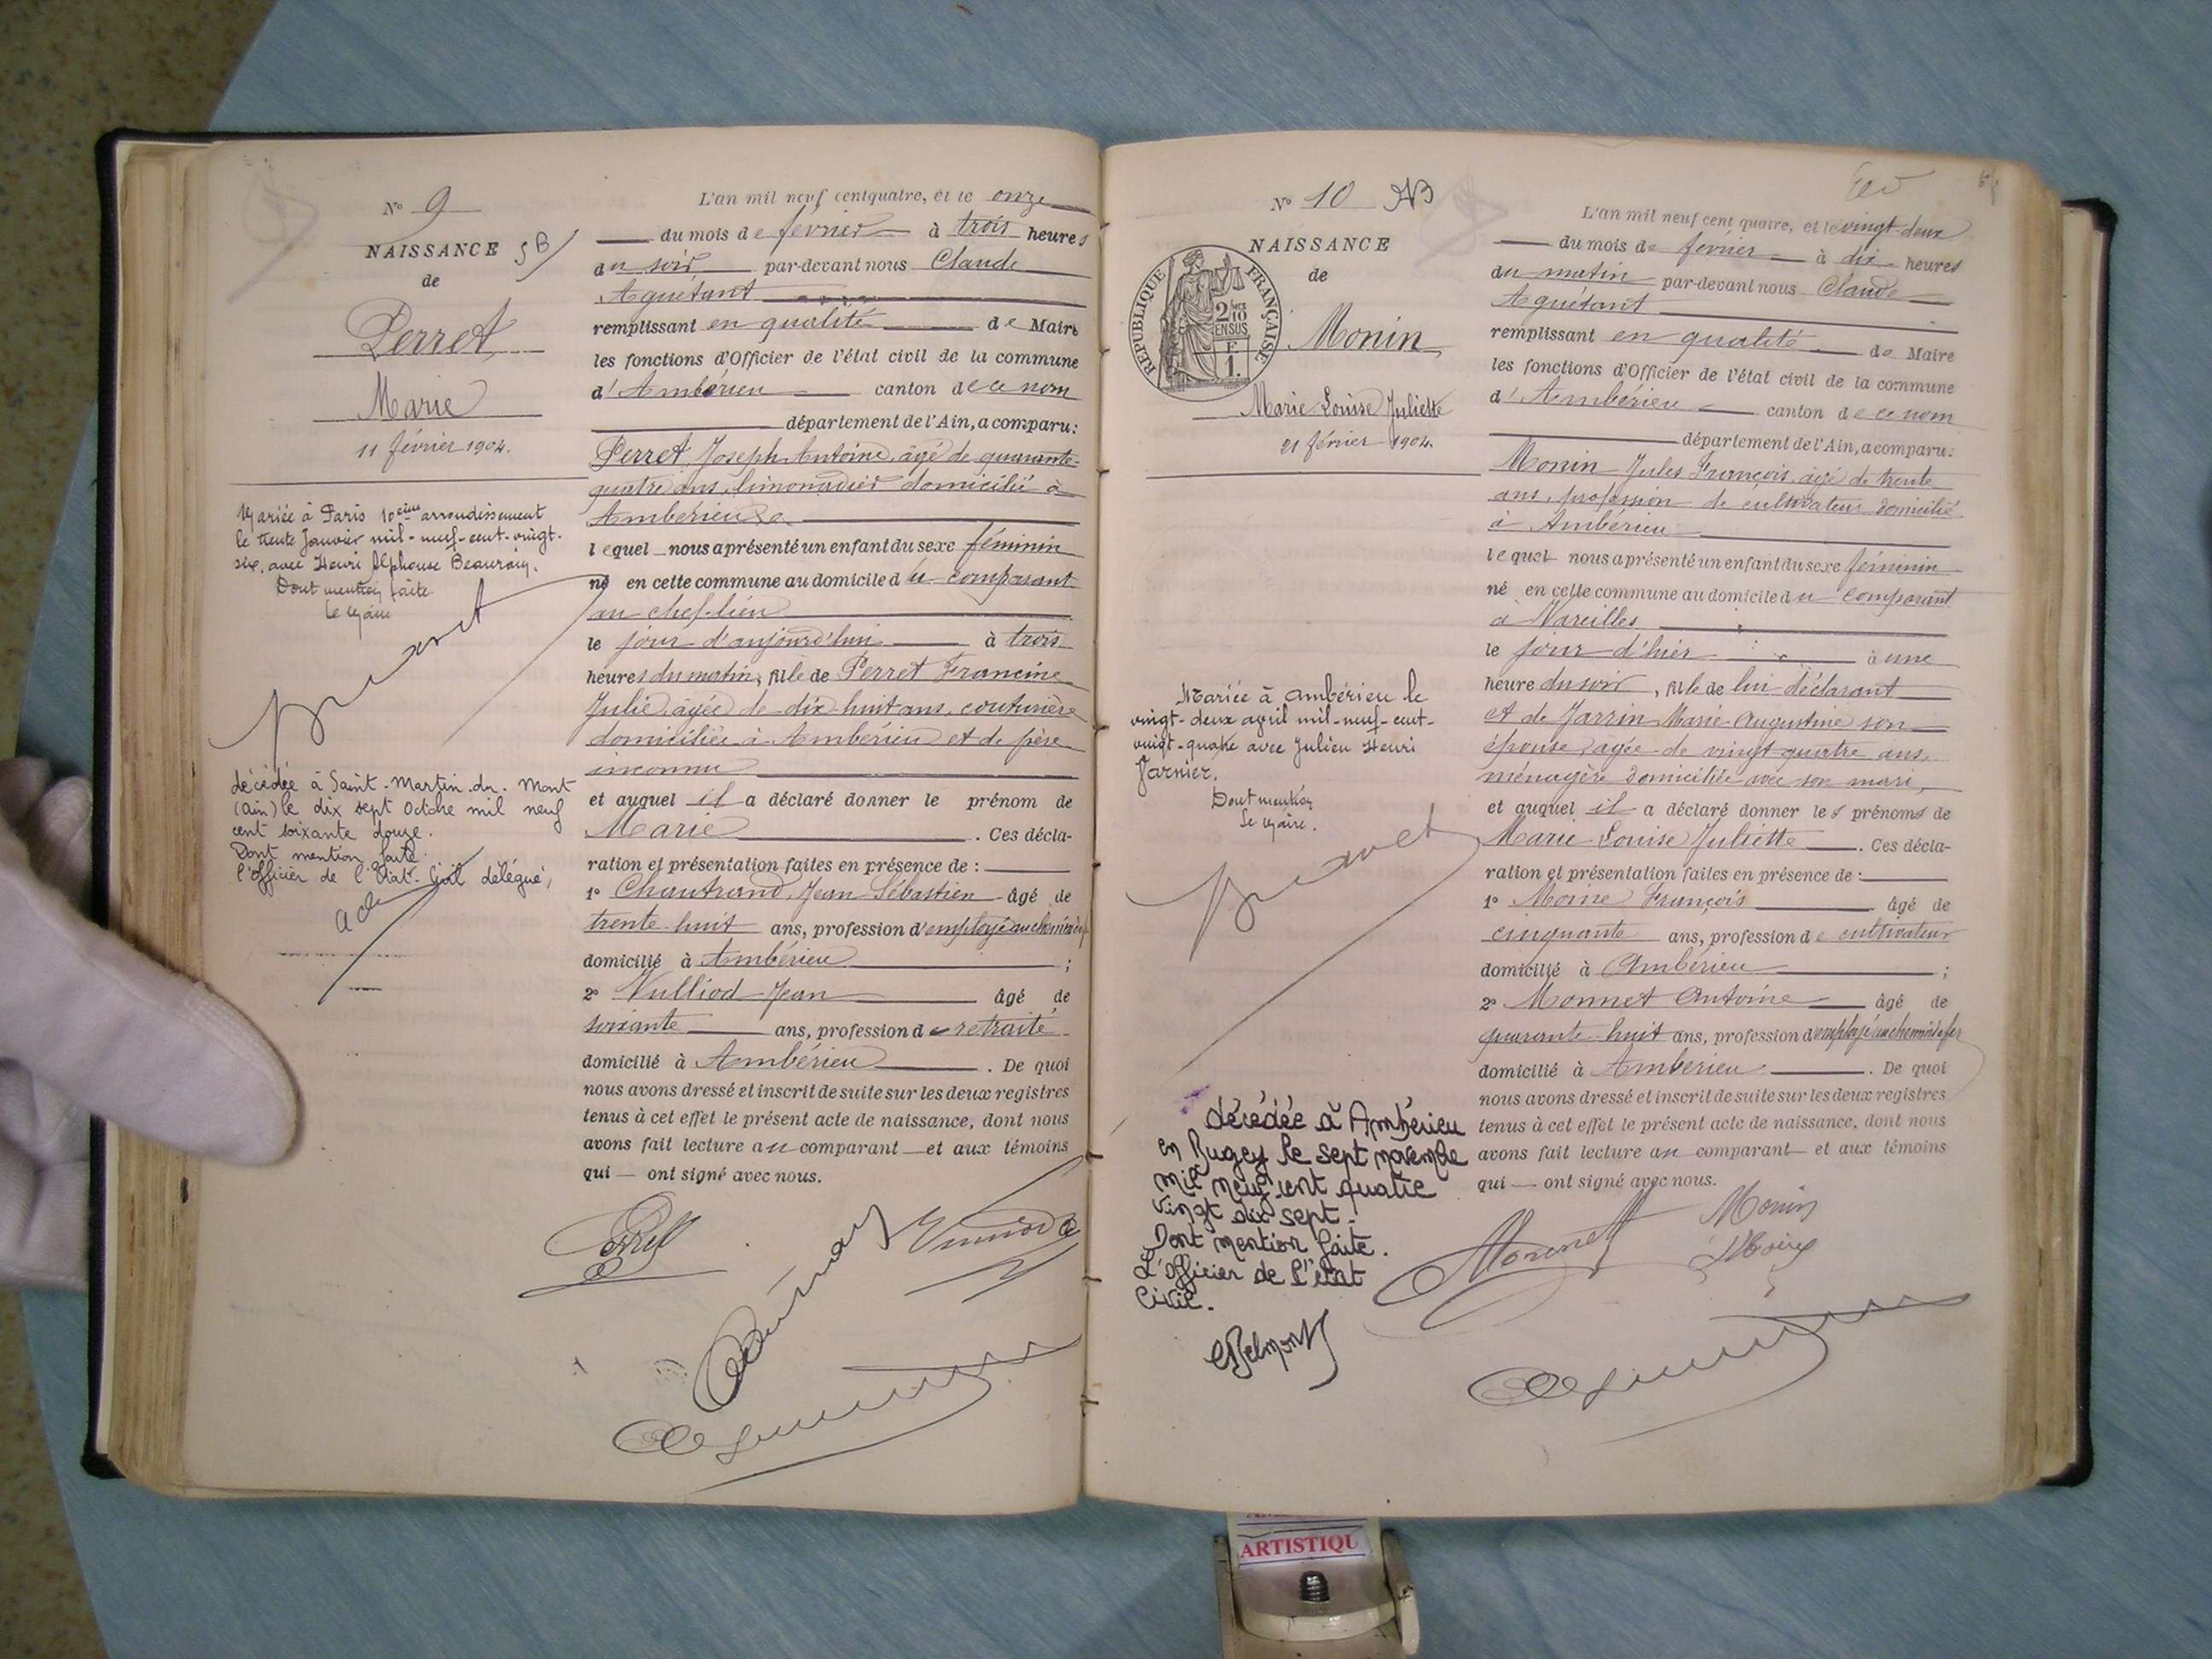 N° 9
NAISSANCE
de
Perret
Marie
11 février 1904.
Mariée à Paris 10eme arrondissement
le trente Janvier mil-neuf-cent-vingt-
six, avec Henri Alphonse
Dont mention faite
Le Maire
décédée à Saint-Martin-du-Mont
(Ain) le dix sept Octobre mil neuf
cent soixante douze.
Dont mention faite.
l'officier de l'Etat-Civil délégué,
L'an mil neuf cent quatre, et le onze
du mois de février à trois heures
du soir par-devant nous Claude
Aguétant
remplissant en qualité de Maire
les fonctions d'Officier de l'état civil de la commune
d'Ambérieu canton de ce nom
département de l'Ain, a comparu:
Perret Joseph Antoine, âgé de quarante-
quatre ans, limonadier domicilié à
Ambérieu
lequel nous a présenté un enfant du sexe féminin
né en cette commune au domicile du comparant
au chef-lieu
le jour d'aujourd'hui à trois
heures du matin, fille de Perret Francine
Julie, âgée de dix-huit ans, couturière
domiciliée à Ambérieu et de père
inconnu
et auquel il a déclaré donner le prénom de
Marie. Ces décla-
ration et présentation faites en présence de:
1° Chautrand, Jean Sébastien âgé de
trente-huit ans, profession d'employé au chemin de f
domicilié à Ambérieu;
2° Vulliod Jean âgé de
soixante ans, profession de retraité
domicilié à Ambérieu. De quoi
nous avons dressé et inscrit de suite sur les deux registres
tenus à cet effet le présent acte de naissance, dont nous
avons fait lecture au comparant et aux témoins
qui ont signé avec nous.
N° 10
NAISSANCE
de
REPUBLIQUE FRANÇAISE
2/10
EN SUS
F
1.
Monin
Marie Louise Juliette
21 février 1904.
Mariée à Ambérieu le
vingt-deux avril mil-neuf-cent-
vingt-quatre avec Julien Henri
Dont mention
Le Maire.
décédée à Ambérieu
en Bugey le sept novembre
mil neuf cent quatre
vingt dix sept.
Dont mention faite.
L'officier de l'état
Civil.
CBelmont
L'an mil neuf cent quatre, et le vingt-deux
du mois de février à dix heures
du matin par-devant nous Claude
Aguétant
remplissant en qualité de Maire
les fonctions d'Officier de l'état civil de la commune
d'Ambérieu canton de ce nom
département de l'Ain, a comparu:
Monin Jules François, âgé de trente
ans, profession de cultivateur domicilié
à Ambérieu
lequel nous a présenté un enfant du sexe féminin
né en cette commune au domicile du comparant
à Vareilles
le jour d'hier à une
heure du soir, fille de lui déclarant
et de Jarrin Marie Augustine son
épouse, âgée de vingt-quatre ans,
ménagère domiciliée avec son mari,
et auquel il a déclaré donner les prénoms de
Marie Louise Juliette. Ces décla-
ration et présentation faites en présence de:
1° Moine François âgé de
cinquante ans, profession de cultivateur
domicilié à Ambérieu;
2° Monnet Antoine âgé de
quarante-huit ans, profession d'employé au chemin de fer
domicilié à Ambérieu. De quoi
nous avons dressé et inscrit de suite sur les deux registres
tenus à cet effet le présent acte de naissance, dont nous
avons fait lecture au comparant et aux témoins
qui ont signé avec nous.
Monnet Monin
Moine
ARTISTIQU